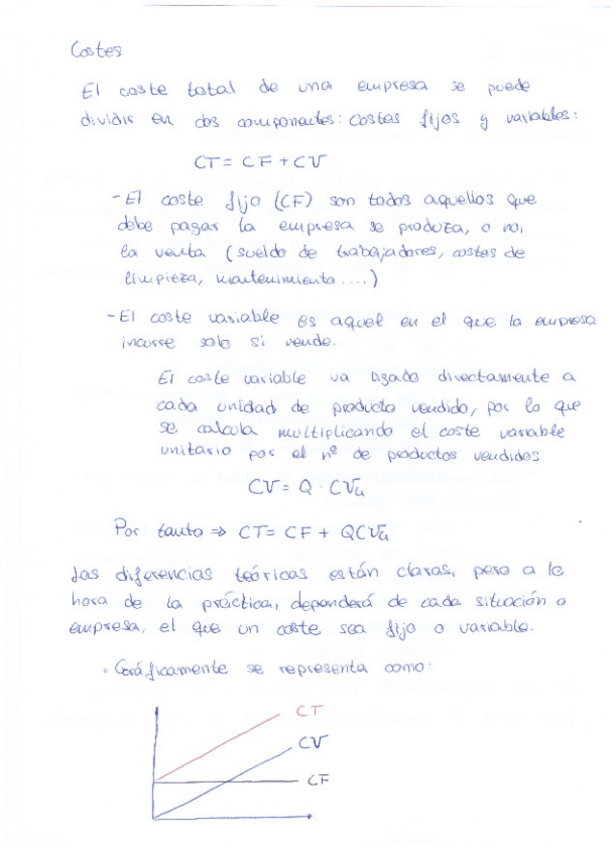 Costes
El coste total de una empresa se puede
dividir en dos componentes: costes fijos y variables:
CT = CF + CV
- El coste fijo (CF) son todos aquellos que
debe pagar la empresa se produzca, o no,
la venta (sueldo de trabajadores, costes de
limpieza, mantenimiento....)
- El coste variable es aquel en el que la empresa
incurre solo si vende.
El coste variable va ligado directamente a
cada unidad de producto vendido, por lo que
se calcula multiplicando el coste variable
unitario por el nº de productos vendidos
CV = Q · CVu
Por tanto ⇒ CT = CF + QCVu
Las diferencias teóricas están claras, pero a la
hora de la práctica, dependerá de cada situación o
empresa, el que un coste sea fijo o variable.
· Gráficamente se representa como:
CT
CV
CF